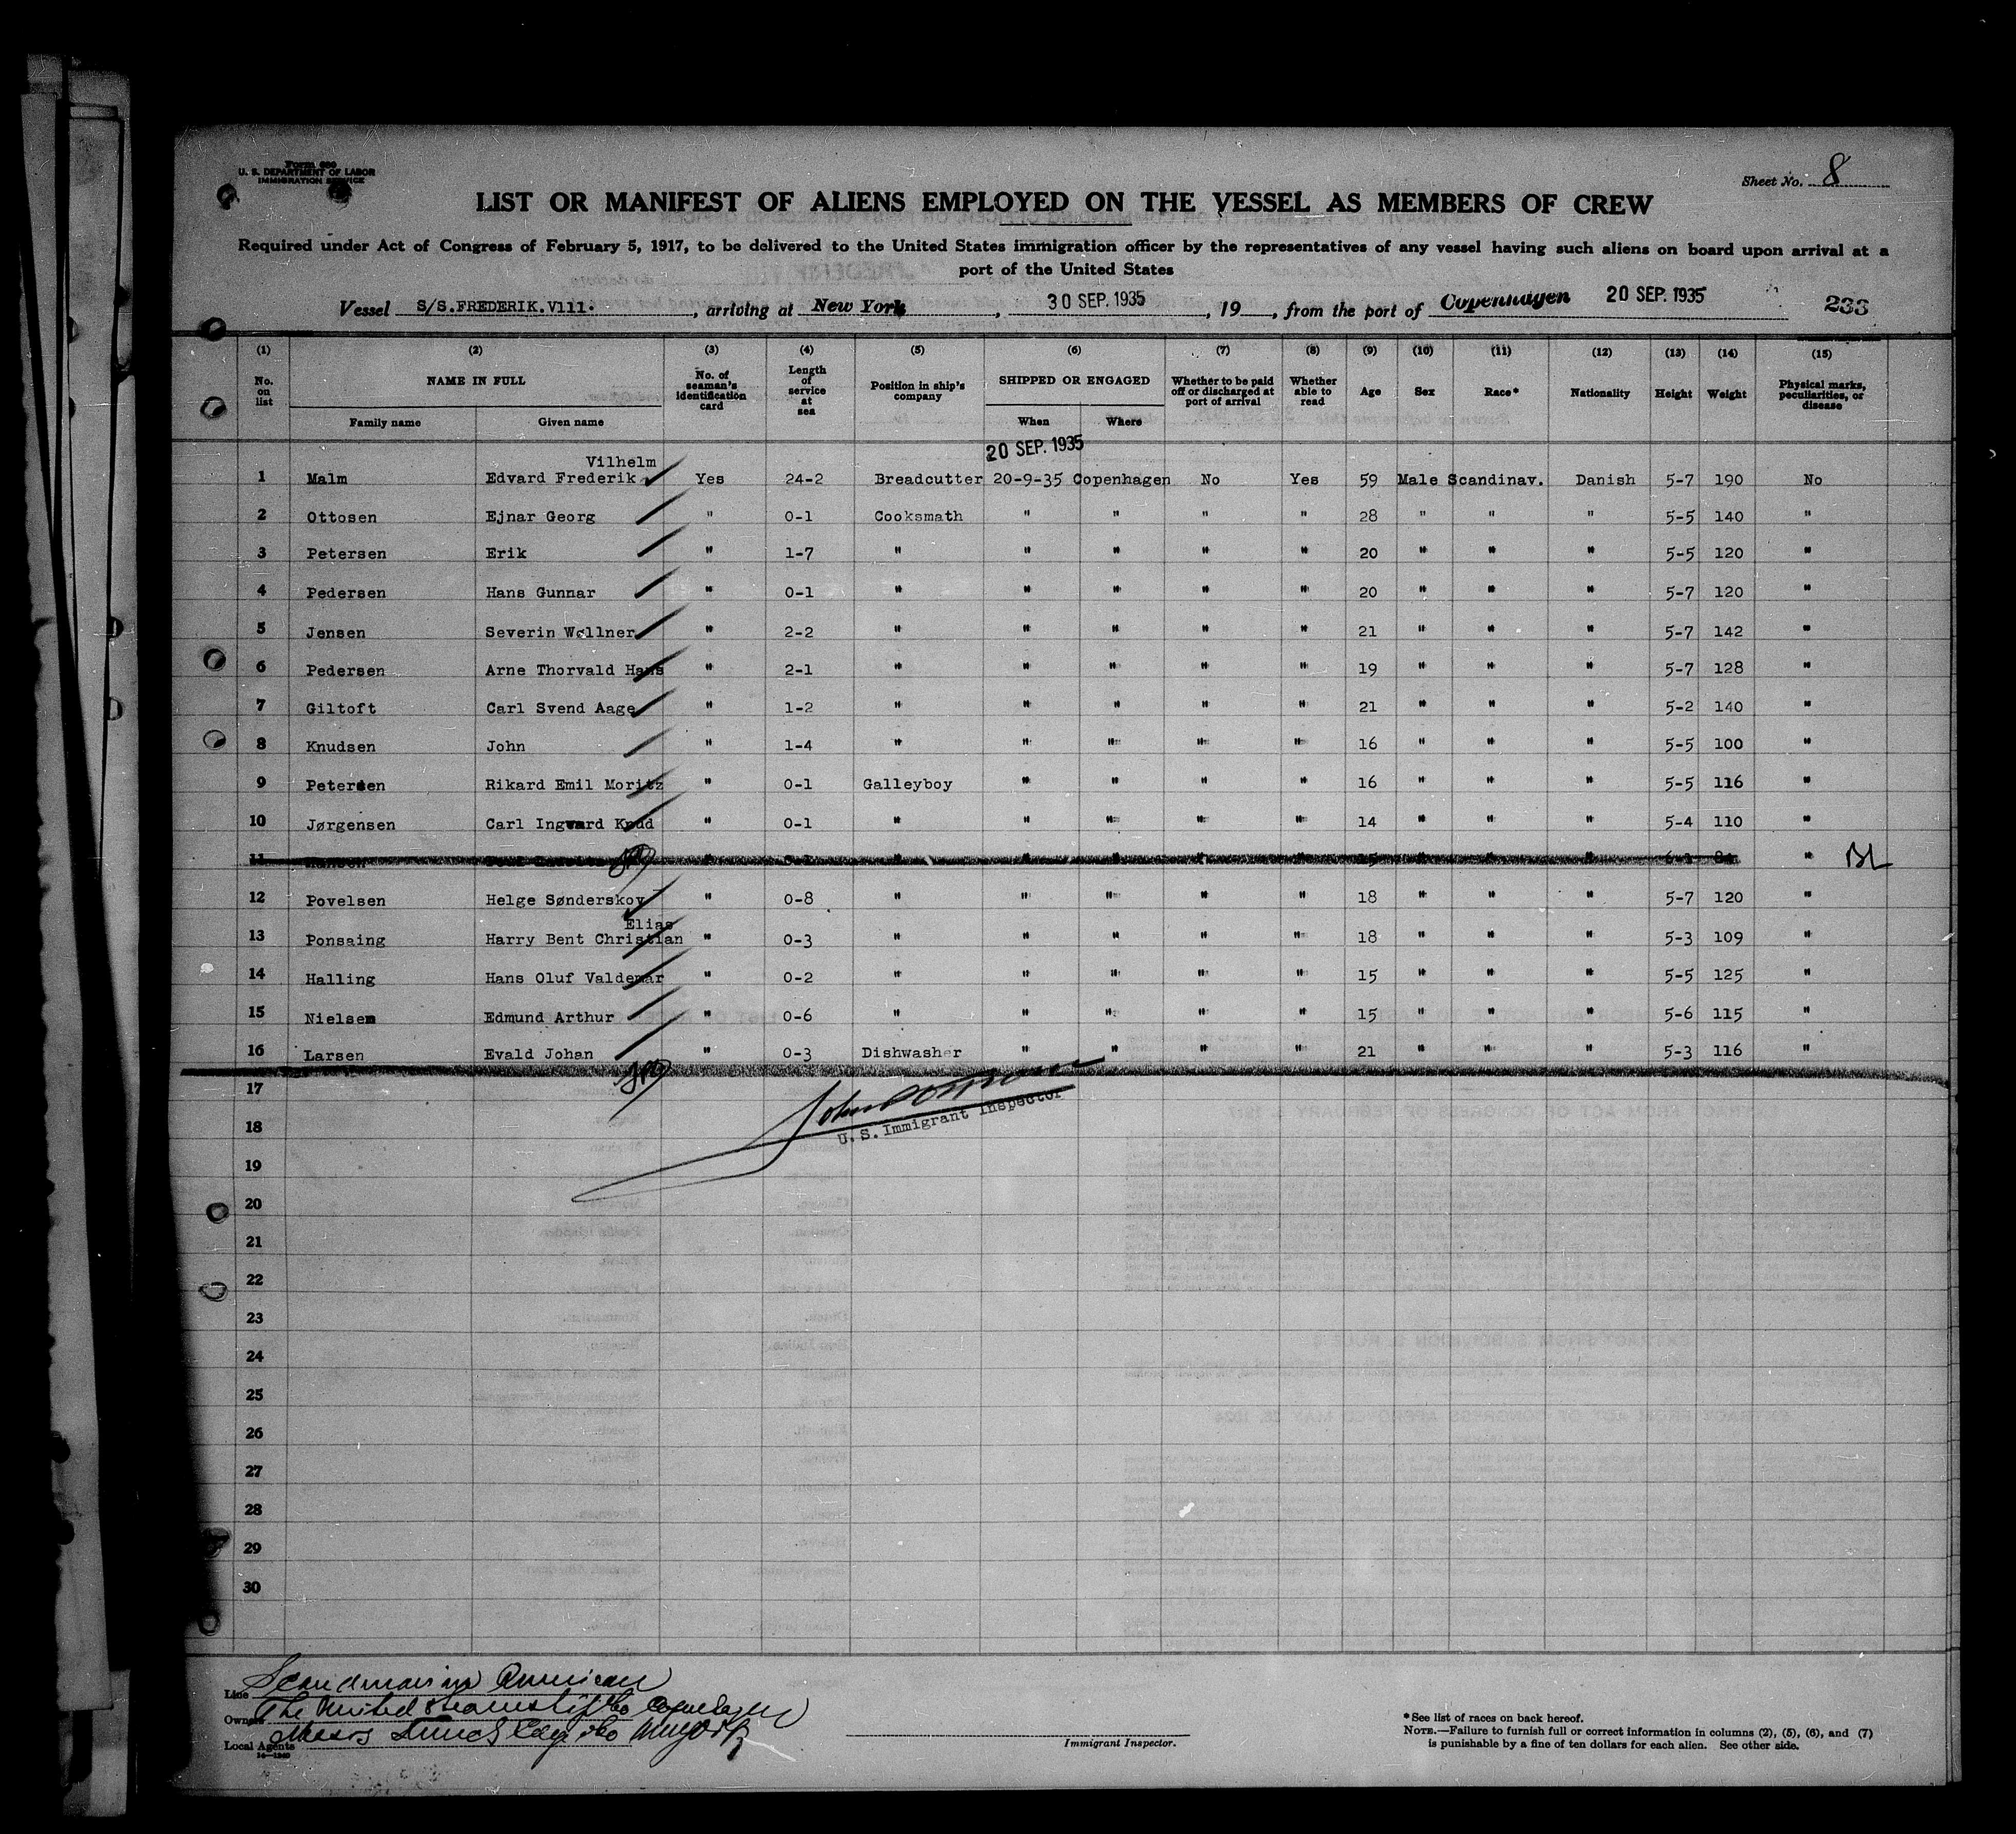 Form 680
U. S. DEPARTMENT OF LABOR
IMMIGRATION SERVICE
Sheet No. 8
LIST OR MANIFEST OF ALIENS EMPLOYED ON THE VESSEL AS MEMBERS OF CREW
Required under Act of Congress of February 5, 1917, to be delivered to the United States immigration officer by the representatives of any vessel having such aliens on board upon arrival at a
port of the United States
Vessel S/S.FREDERIK.V111. , arriving at New York , 30 SEP. 1935 , 19 , from the port of Copenhagen 20 SEP. 1935 233
(1) (2) (3) (4) (5) (6) (7) (8) (9) (10) (11) (12) (13) (14) (15)
No. on list NAME IN FULL Family name Given name No. of seaman's identification card Length of service at sea Position in ship's company SHIPPED OR ENGAGED When Where Whether to be paid off or discharged at port of arrival Whether able to read Age Sex Race* Nationality Height Weight Physical marks, peculiarities, or disease
20 SEP. 1935
Vilhelm
1 Malm Edvard Frederik Yes 24-2 Breadcutter 20-9-35 Copenhagen No Yes 59 Male Scandinav. Danish 5-7 190 No
2 Ottosen Ejnar Georg " 0-1 Cooksmath " " " " 28 " " " 5-5 140 "
3 Petersen Erik " 1-7 " " " " " 20 " " " 5-5 120 "
4 Pedersen Hans Gunnar " 0-1 " " " " " 20 " " " 5-7 120 "
5 Jensen Severin Wøllner " 2-2 " " " " " 21 " " " 5-7 142 "
6 Pedersen Arne Thorvald Hans " 2-1 " " " " " 19 " " " 5-7 128 "
7 Giltoft Carl Svend Aage " 1-2 " " " " " 21 " " " 5-2 140 "
8 Knudsen John " 1-4 " " " " " 16 " " " 5-5 100 "
9 Petersen Rikard Emil Moritz " 0-1 Galleyboy " " " " 16 " " " 5-5 116 "
10 Jørgensen Carl Ingward Knud " 0-1 " " " " " 14 " " " 5-4 110 "
11 " " " " " " " " " " BL
12 Povelsen Helge Sønderskov " 0-8 " " " " " 18 " " " 5-7 120 "
Elias
13 Ponsaing Harry Bent Christian " 0-3 " " " " " 18 " " " 5-3 109 "
14 Halling Hans Oluf Valdemar " 0-2 " " " " " 15 " " " 5-5 125 "
15 Nielsen Edmund Arthur " 0-6 " " " " " 15 " " " 5-6 115 "
16 Larsen Evald Johan " 0-3 Dishwasher " " " " 21 " " " 5-3 116 "
17
U. S. Immigrant Inspector
18
19
20
21
22
23
24
25
26
27
28
29
30
Line Scandinavian American
Owners The United Steamship Co Copenhagen
Local Agents
14—1240
Immigrant Inspector.
* See list of races on back hereof.
NOTE.—Failure to furnish full or correct information in columns (2), (5), (6), and (7)
is punishable by a fine of ten dollars for each alien. See other side.